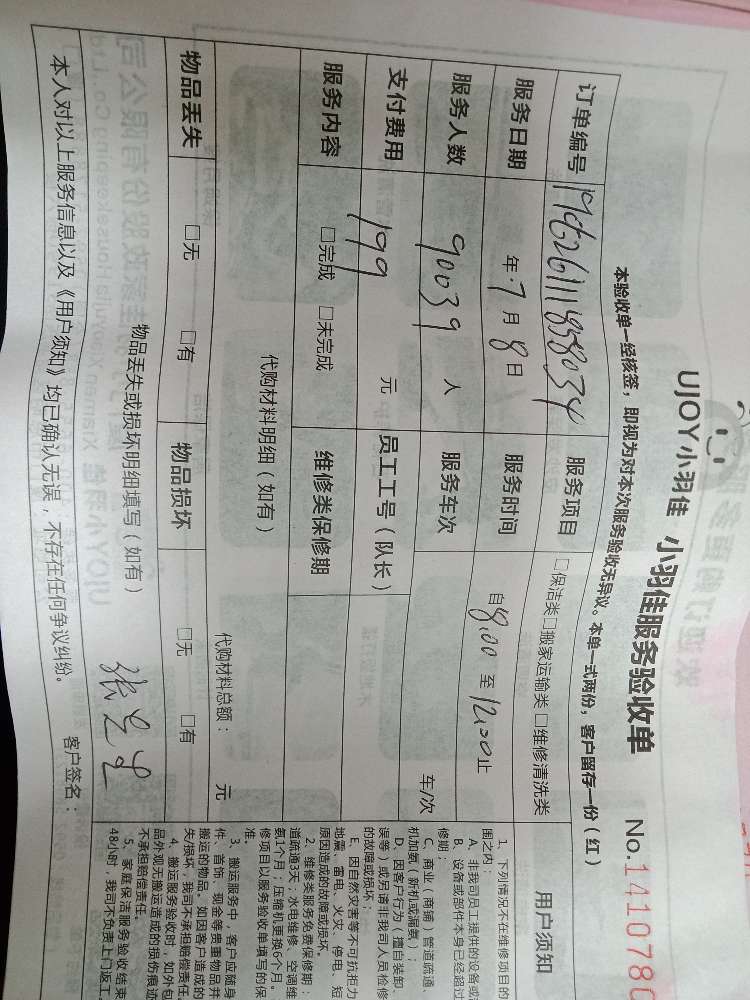 UJOY小羽佳 小羽佳服务验收单 No.141078
本验收单一经核签，即视为对本次服务验收无异议。本单一式两份，客户留存一份（红）
订单编号 服务项目 □保洁类□搬家运输类□维修清洗类
服务日期 年 7 月 8 日 服务时间 自8:00 至 12:00止
服务人数 90039 人 服务车次 车/次
支付费用 199 元 员工工号（队长）
服务内容 □完成 □未完成 维修类保修期
代购材料明细（如有）
代购材料总额： 元
物品丢失 □无 □有 物品损坏 □无 □有
物品丢失或损坏明细填写（如有）
本人对以上服务信息以及《用户须知》均已确认无误，不存在任何争议纠纷。 客户签名：
张先生
用户须知
1、下列情况不在维修项目的
围之内：
A、非我司员工提供的设备或
B、设备或部件本身已经超过
修期；
C、商业（商铺）管道疏通、
机加氨（新机或漏氨）；
D、因客户行为（擅自装卸、
误等）或另请非我司人员检修
的故障或损坏；
E、因自然灾害等不可抗拒力
地震、雷电、火灾、停电、短
原因造成的故障或损坏。
2、维修类服务免费保修期：
道疏通3天；水电维修、空调维
氨1个月；压缩机更换6个月。
修项目以服务验收单填写的保
准。
3、搬运服务中，客户应随身
件、首饰、现金等贵重物品并
搬运的物品。如因客户造成的
失/损坏，我司不承担赔偿责任。
4、搬运服务验收时，如外包
品外观无搬运造成的损伤痕迹
不承担赔偿责任。
5、家庭保洁服务验收结束
48小时，我司不负责上门返工